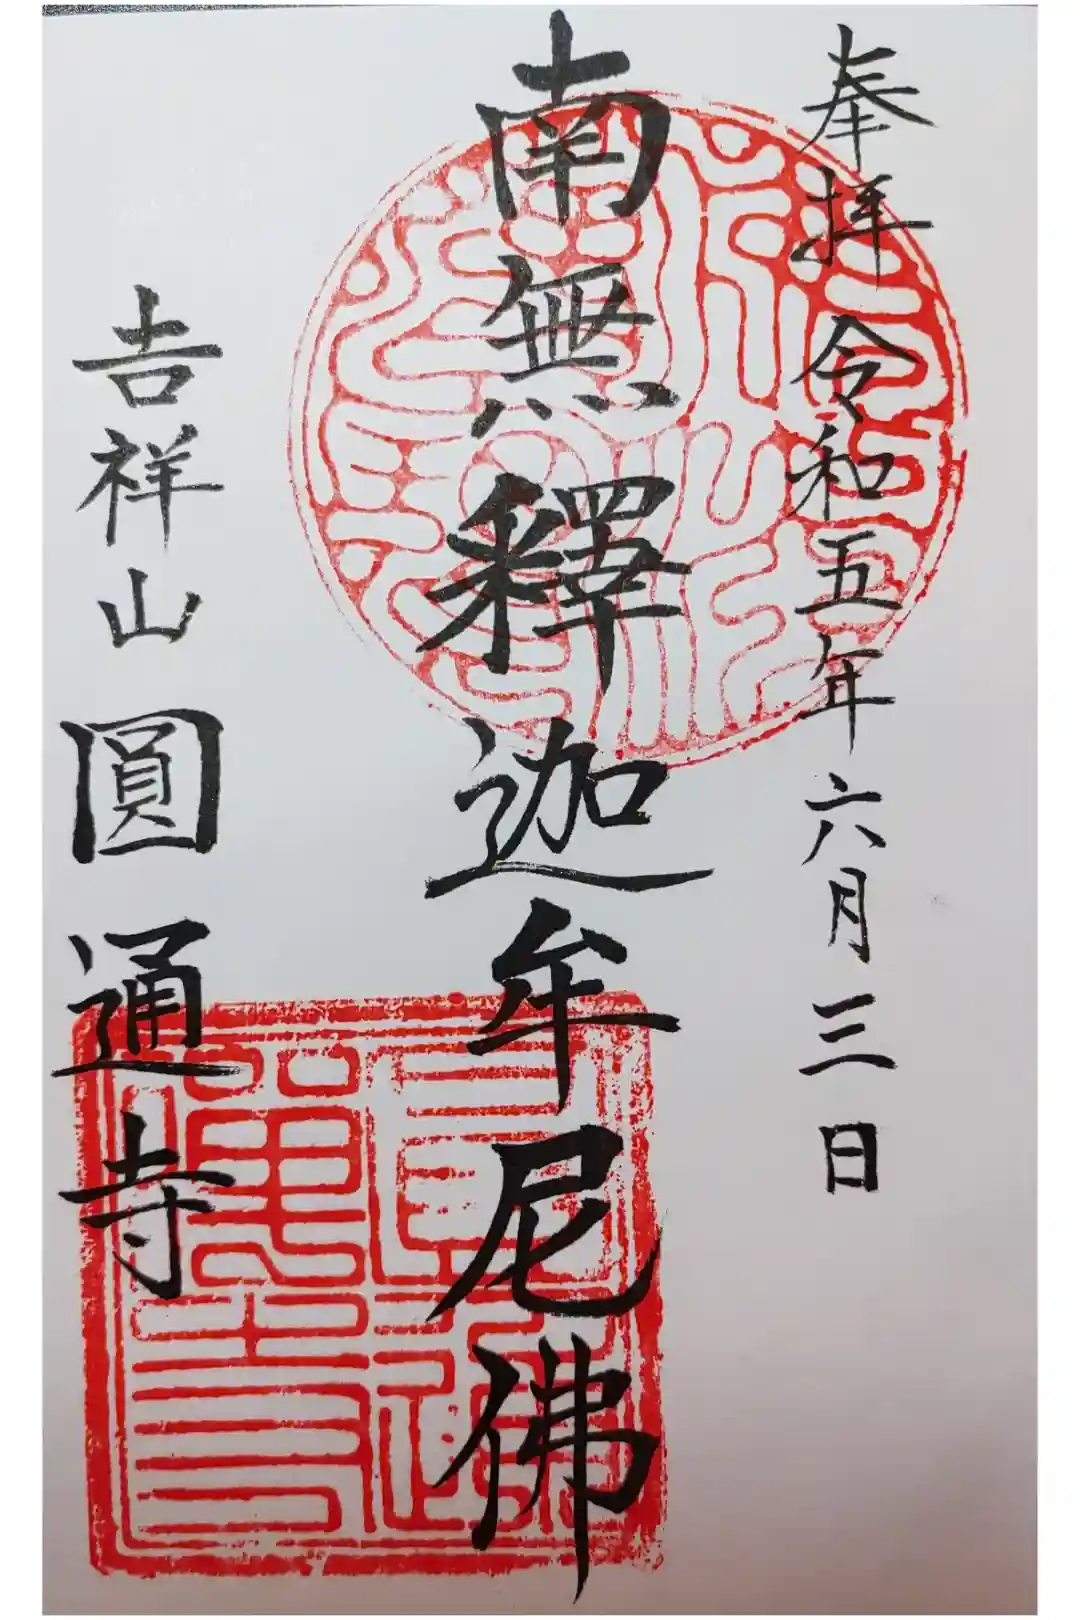 奉拝 令和五年六月三日
南無釋迦牟尼佛
吉祥山 圓通寺